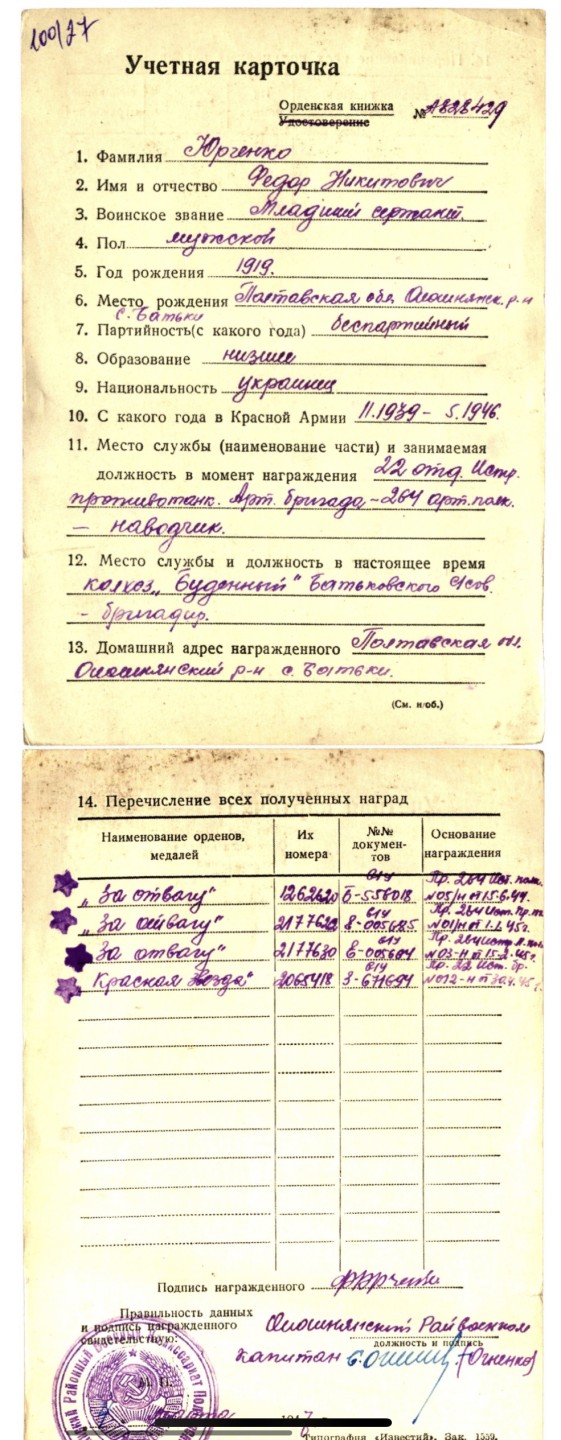 100/27
Учетная карточка
Орденская книжка
Удостоверение
№ А828429
1. Фамилия Юрченко
2. Имя и отчество Федор Никитович
3. Воинское звание Младший сержант.
4. Пол мужской
5. Год рождения 1919.
6. Место рождения Полтавская обл. Опошнянск. р-н
с. Батьки
7. Партийность(с какого года) беспартийный
8. Образование низшее
9. Национальность украинец
10. С какого года в Красной Армии 11.1939 – 5.1946.
11. Место службы (наименование части) и занимаемая
должность в момент награждения 22 отд. Истр.
противотанк. Арт. бригада – 264 арт. полк.
– наводчик.
12. Место службы и должность в настоящее время
колхоз „Буденный" Батьковского с/сов.
– бригадир.
13. Домашний адрес награжденного Полтавская обл.
Опошнянский р-н с. Батьки.
(См. н/об.)
14. Перечисление всех полученных наград
Наименование орденов, медалей
Их номера
№№ документов
Основание награждения
„За отвагу" 1262620 Б-558018 Пр. 264 Ист. полк. №05/н от 15.6.44.
„За отвагу" 2177622 Е-005685 Пр. 264 Истр. пр. №01/н от 1.1.45г.
„За отвагу" 2177630 Е-005684 Пр. 264 истр. п. №03-н от 15.2.45г.
Красная Звезда" 2065418 З-671694 Пр. 22 Ист. бр. №012-н от 30.4.45г.
Подпись награжденного ФЮрченко
Правильность данных
и подпись награжденного
свидетельствую:
Опошнянский Райвоенком
должность и подпись
капитан (Огненко)
М. П.
Типография «Известий». Зак. 1559.